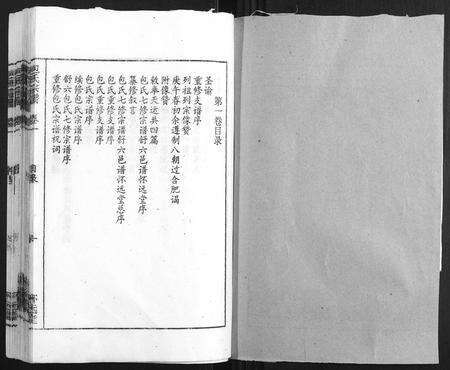 第一卷目录
圣谕
重修支谱序
列祖列宗像赞
庚午春初余遵制八朝过合肥谒
附像赞
敕奉天达共四篇
包氏七修宗谱舒六邑谱怀远堂序
纂修叙言
包氏七修宗谱舒六邑谱怀远堂总序
包氏重修支谱序
包氏重修支谱序
包氏宗谱序
续修包氏宗谱序
舒六包氏七修宗谱序
重修包氏宗谱祝词